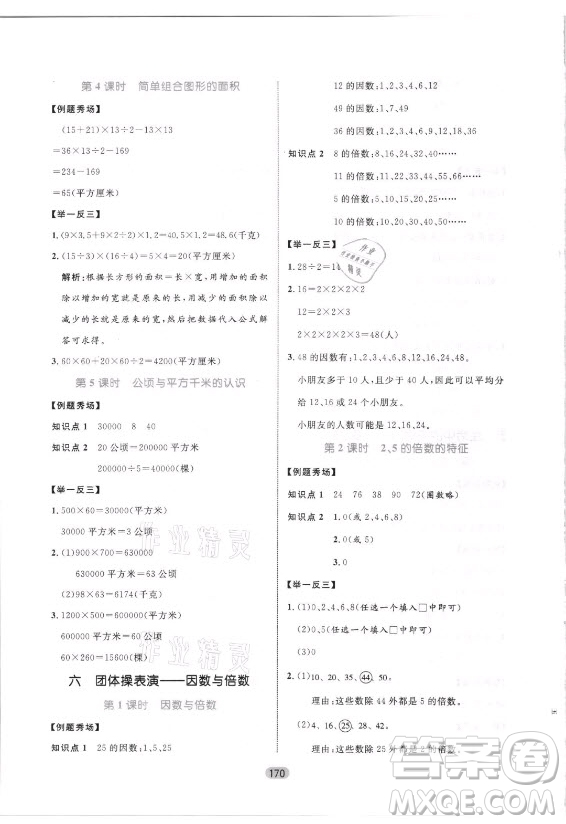 第4课时 简单组合图形的面积
【例题秀场】
(15+21)×13÷2-13×13
=36×13÷2-169
=234-169
=65(平方厘米)
【举一反三】
1.(9×3.5+9×2÷2)×1.2=48.6(千克)
2.(15÷3)×(12÷3)=5×4=20(平方米)
解析:根据长方形的面积=长×宽,用增加的面积
除以增加的宽就是原来的长,用减少的面积除以
减少的长就是原来的宽,然后把数据代入公式解
答可求出。
3.60×60+20×60÷2=4200(平方厘米)
第5课时 公顷与平方千米的认识
【例题秀场】
知识点1 30000 8 40
知识点2 20公顷=200000平方米
200000÷5=40000(棵)
【举一反三】
1.500×60=30000(平方米)
30000平方米=3公顷
2.(1)900×700=630000(平方米)
630000平方米=63公顷
(2)98×63=6174(千克)
3.1200×500=600000(平方米)
600000平方米=60公顷
60×160=9600(棵)
六 团体操表演——因数与倍数
第1课时 因数与倍数
【例题秀场】
知识点1 25的因数:1,5,25
12的因数:1,2,3,4,6,12
49的因数:1,7,49
36的因数:1,2,3,4,6,9,12,18,36
知识点2 8的倍数:8,16,24,32,40……
11的倍数:11,22,33,44,55……
5的倍数:5,10,15,20……
10的倍数:10,20,30,40,50……
【举一反三】
1.28÷2=14
2.16=2×2×2×2
12=2×2×3
2×2×2×2×3=48(人)
3.48的因数有:1,2,3,4,6,8,12,16,24,48。
小朋友多于10人,且要分得的梨的块数平均分
小朋友的人数可能是12,16,24,48。
第2课时 2、5的倍数的特征
【例题秀场】
知识点1 24 76 38 90 72(圈数略)
知识点2 1.0(或2,4,6,8)
2.0(或5)
3.0
【举一反三】
1.(1)0,2,4,6,8(任选一个填入□中即可)
(2)0,5(任选一个填入□中即可)
(3)0
2.(1)10、20、35、44、50。
理由:这些数除44外都是5的倍数。
(2)4、16、25、28、42。
理由:这些数除25外都是2的倍数。
170
作业精灵
作业精灵
答案圈
MXQE.COM